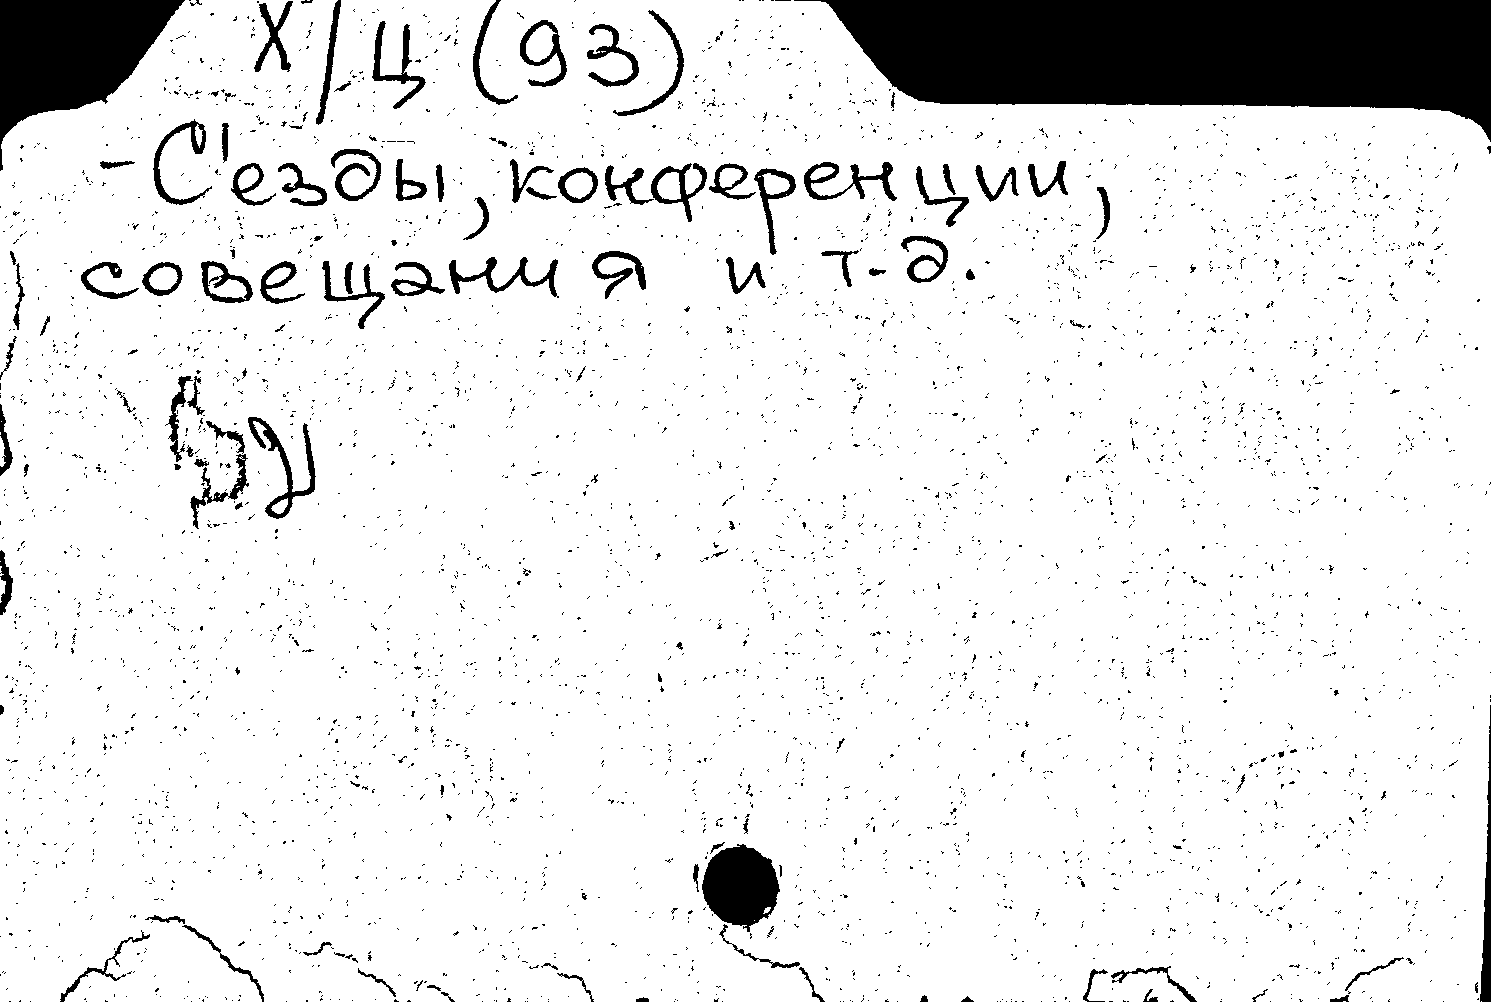 Х/Ц (93)
- С'езды, конференции,
совещания и т.д.